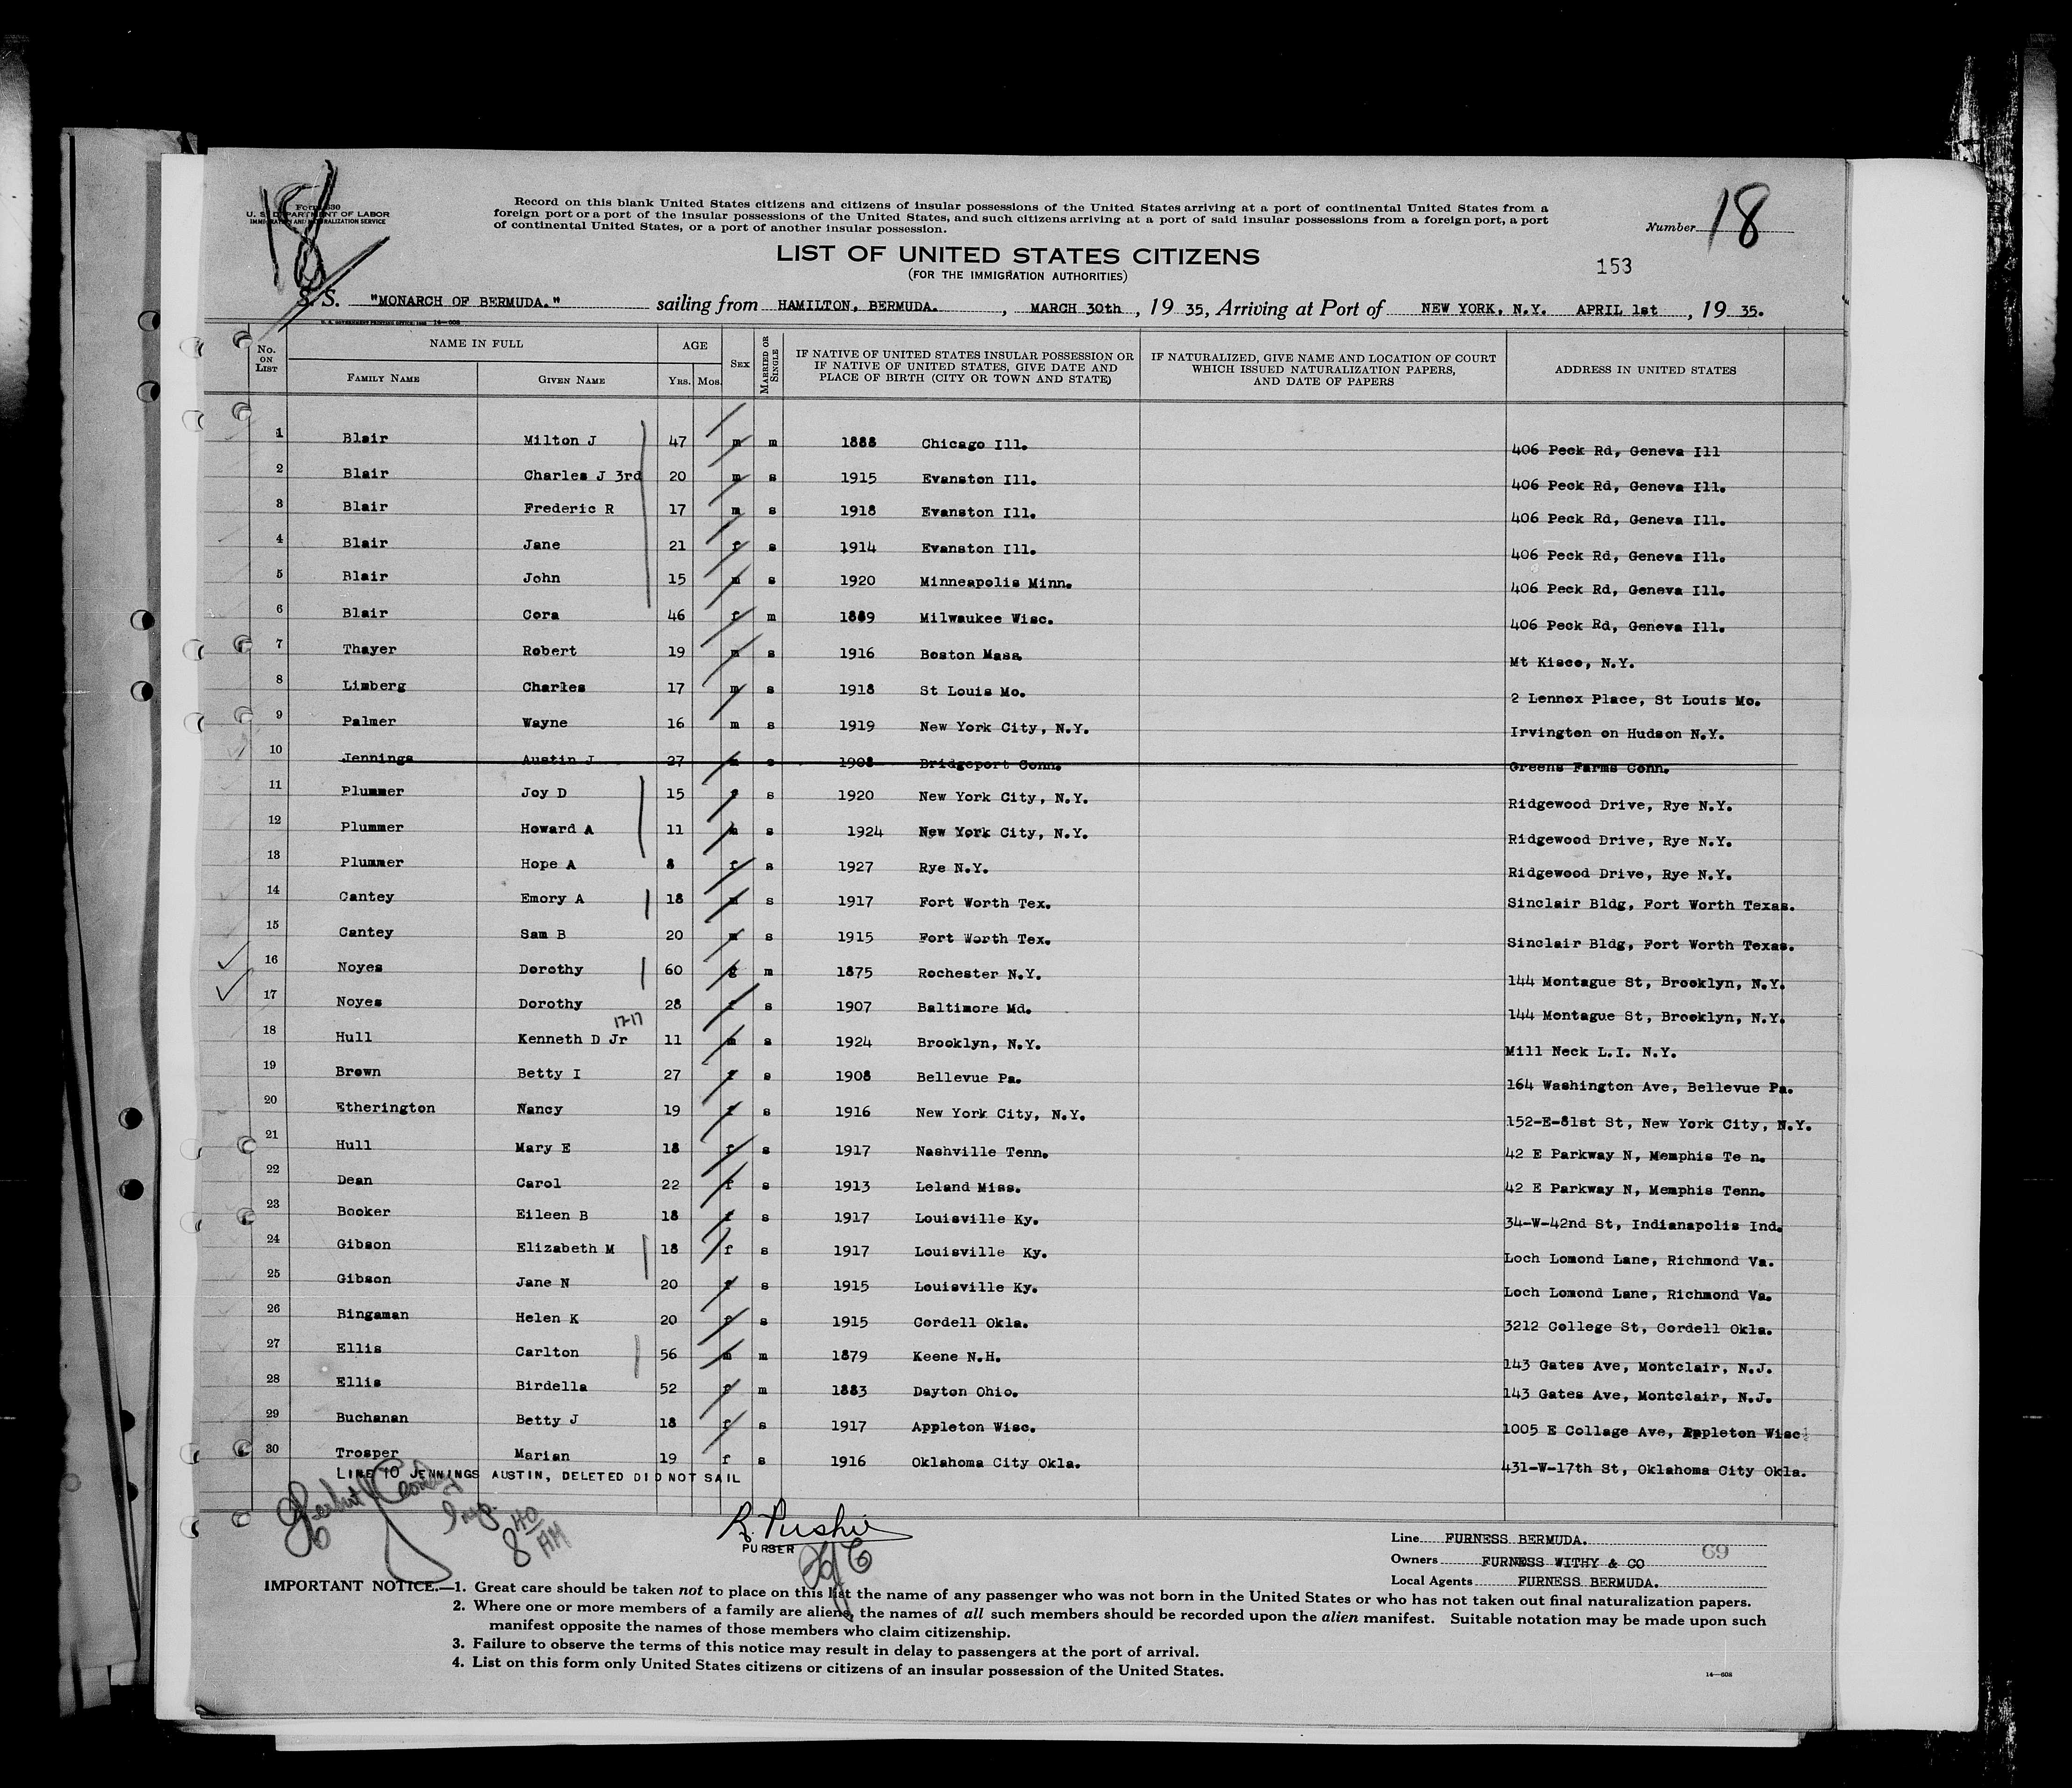 18
Form 630
U. S. DEPARTMENT OF LABOR
IMMIGRATION AND NATURALIZATION SERVICE
Record on this blank United States citizens and citizens of insular possessions of the United States arriving at a port of continental United States from a
foreign port or a port of the insular possessions of the United States, and such citizens arriving at a port of said insular possessions from a foreign port, a port
of continental United States, or a port of another insular possession.
Number 18
LIST OF UNITED STATES CITIZENS
(FOR THE IMMIGRATION AUTHORITIES)
153
S. S. "MONARCH OF BERMUDA." sailing from HAMILTON, BERMUDA. , MARCH 30th , 19 35, Arriving at Port of NEW YORK, N.Y. APRIL 1st , 19 35.
No. ON LIST NAME IN FULL FAMILY NAME GIVEN NAME AGE YRS. MOS. SEX MARRIED OR SINGLE IF NATIVE OF UNITED STATES INSULAR POSSESSION OR IF NATIVE OF UNITED STATES, GIVE DATE AND PLACE OF BIRTH (CITY OR TOWN AND STATE) IF NATURALIZED, GIVE NAME AND LOCATION OF COURT WHICH ISSUED NATURALIZATION PAPERS, AND DATE OF PAPERS ADDRESS IN UNITED STATES
1 Blair Milton J 47 m m 1888 Chicago Ill. 406 Peck Rd, Geneva Ill
2 Blair Charles J 3rd 20 m s 1915 Evanston Ill. 406 Peck Rd, Geneva Ill.
3 Blair Frederic R 17 m s 1918 Evanston Ill. 406 Peck Rd, Geneva Ill.
4 Blair Jane 21 f s 1914 Evanston Ill. 406 Peck Rd, Geneva Ill.
5 Blair John 15 m s 1920 Minneapolis Minn. 406 Peck Rd, Geneva Ill.
6 Blair Cora 46 f m 1889 Milwaukee Wisc. 406 Peck Rd, Geneva Ill.
7 Thayer Robert 19 m s 1916 Boston Mass Mt Kisco, N.Y.
8 Limberg Charles 17 m s 1918 St Louis Mo. 2 Lennox Place, St Louis Mo.
9 Palmer Wayne 16 m s 1919 New York City, N.Y. Irvington on Hudson N.Y.
10 Jennings Austin J 27 m s 1908 Bridgeport Conn. Greens Farms Conn.
11 Plummer Joy D 15 f s 1920 New York City, N.Y. Ridgewood Drive, Rye N.Y.
12 Plummer Howard A 11 m s 1924 New York City, N.Y. Ridgewood Drive, Rye N.Y.
13 Plummer Hope A 8 f s 1927 Rye N.Y. Ridgewood Drive, Rye N.Y.
14 Cantey Emory A 18 m s 1917 Fort Worth Tex. Sinclair Bldg, Fort Worth Texas.
15 Cantey Sam B 20 m s 1915 Fort Worth Tex. Sinclair Bldg, Fort Worth Texas.
16 Noyes Dorothy 60 m 1875 Rochester N.Y. 144 Montague St, Brooklyn, N.Y.
17 Noyes Dorothy 28 f s 1907 Baltimore Md. 144 Montague St, Brooklyn, N.Y.
17-17
18 Hull Kenneth D Jr 11 m s 1924 Brooklyn, N.Y. Mill Neck L.I. N.Y.
19 Brown Betty I 27 f s 1908 Bellevue Pa. 164 Washington Ave, Bellevue Pa.
20 Etherington Nancy 19 f s 1916 New York City, N.Y. 152-E-81st St, New York City, N.Y.
21 Hull Mary E 18 f s 1917 Nashville Tenn. 42 E Parkway N, Memphis Te n.
22 Dean Carol 22 f s 1913 Leland Miss. 42 E Parkway N, Memphis Tenn.
23 Booker Eileen B 18 f s 1917 Louisville Ky. 34-W-42nd St, Indianapolis Ind.
24 Gibson Elizabeth M 18 f s 1917 Louisville Ky. Loch Lomond Lane, Richmond Va.
25 Gibson Jane N 20 f s 1915 Louisville Ky. Loch Lomond Lane, Richmond Va.
26 Bingaman Helen K 20 f s 1915 Cordell Okla. 3212 College St, Cordell Okla.
27 Ellis Carlton 56 m m 1879 Keene N.H. 143 Gates Ave, Montclair, N.J.
28 Ellis Birdella 52 f m 1883 Dayton Ohio. 143 Gates Ave, Montclair, N.J.
29 Buchanan Betty J 18 f s 1917 Appleton Wisc. 1005 E Collage Ave, Appleton Wisc
30 Trosper Marian 19 f s 1916 Oklahoma City Okla. 431-W-17th St, Oklahoma City Okla.
LINE 10 JENNINGS AUSTIN, DELETED DID NOT SAIL
Insp.
8 40 AM
R. Pushie
PURSER
Line FURNESS BERMUDA.
69
Owners FURNESS WITHY & CO
Local Agents FURNESS BERMUDA.
IMPORTANT NOTICE.—1. Great care should be taken not to place on this list the name of any passenger who was not born in the United States or who has not taken out final naturalization papers.
2. Where one or more members of a family are aliens, the names of all such members should be recorded upon the alien manifest. Suitable notation may be made upon such
manifest opposite the names of those members who claim citizenship.
3. Failure to observe the terms of this notice may result in delay to passengers at the port of arrival.
4. List on this form only United States citizens or citizens of an insular possession of the United States.
14—608